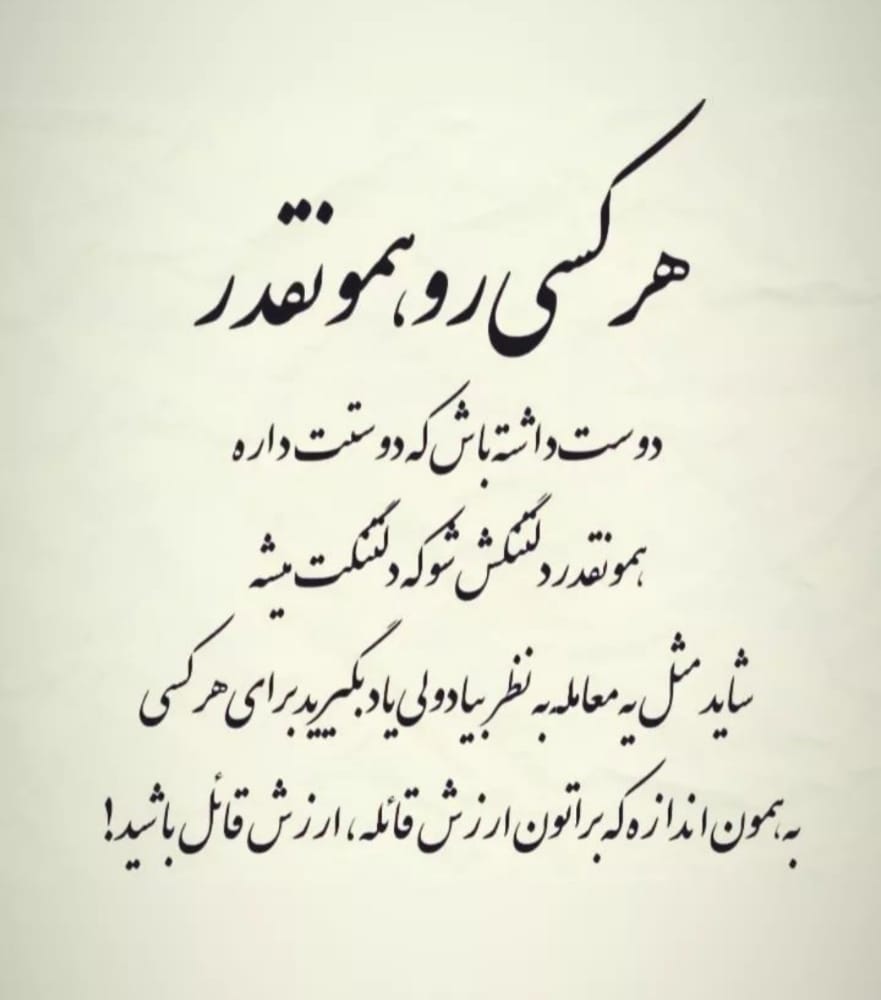 هر کسی رو همونقدر
دوست داشته باش که دوستت داره
همونقدر دلتنگش شو که دلتنگت میشه
شاید مثل یه معامله به نظر بیاد ولی یاد بگیرید برای هر کسی
به همون اندازه که براتون ارزش قائله، ارزش قائل باشید!